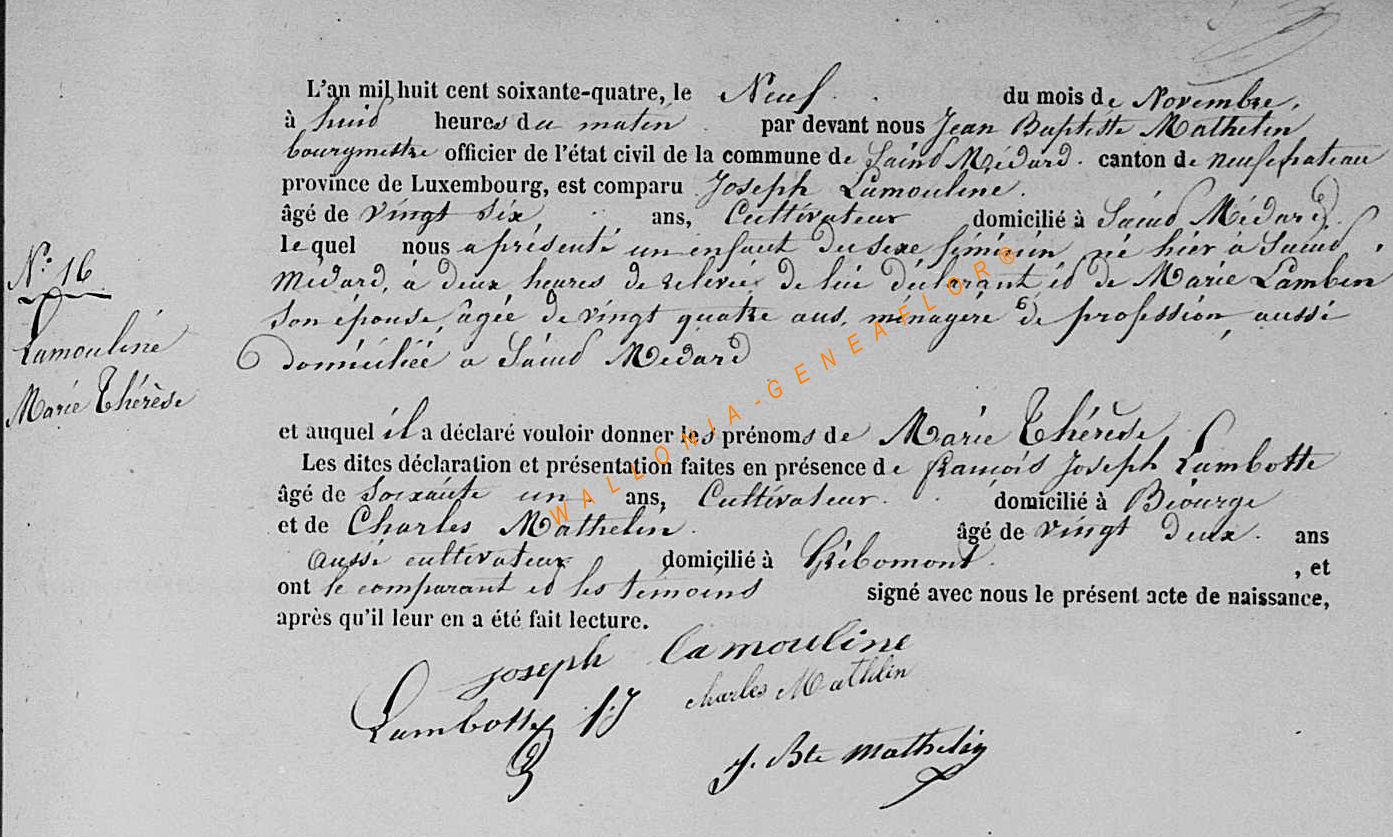 L'an mil huit cent soixante-quatre, le Neuf du mois de Novembre,
à huit heures du matin par devant nous Jean Baptiste Mathelin
bourgmestre officier de l'état civil de la commune de Saint Médard. canton de neufchateau
province de Luxembourg, est comparu Joseph Lamouline.
âgé de vingt six ans, Cultivateur domicilié à Saint Médard.
lequel nous a présenté un enfant du sexe féminin, né hier à Saint
Médard, à deux heures de relevée de lui déclarant et de Marie Lambert
son épouse, âgée de vingt quatre ans, ménagère de profession, aussi
domiciliée a Saint Médard
N° 16
Lamouline
Marie Thérèse
et auquel il a déclaré vouloir donner les prénoms de Marie Thérèse
Les dites déclaration et présentation faites en présence de françois Joseph Lambotte
âgé de soixante un ans, Cultivateur. domicilié à Biourge
et de Charles Mathelin. âgé de vingt deux. ans
aussi cultivateur domicilié à Gribomont , et
ont le comparant et les témoins signé avec nous le présent acte de naissance,
après qu'il leur en a été fait lecture.
joseph lamouline
Lambotte f.J charles Mathlin
J. Bte Mathelin
WALLONIA-GENEAFLOR®